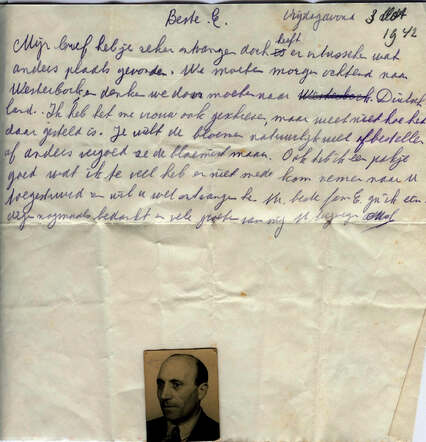 Beste E. Vrijdagavond 3 Okt
1942
Mijn brief heb je zeker ontvangen doch heeft er intusschen wat
anders plaats gevonden. We moeten morgen ochtend naar
Westerbork en denken we door moeten naar Westerbork. Duitsch
land. Ik heb het me vrouw ook geschreven, maar weet niet hoe het
daar gesteld is. Je wilt de bloemen natuurlijk wel afbestellen
of anders vergoed ze de bloemist maar. Ook heb ik een pakje
goed wat ik te veel heb en niet mede kom nemen naar U
toegestuurd en wil U wel ontvangen. beste fam E.
nogmaals bedankt en vele groeten van mij